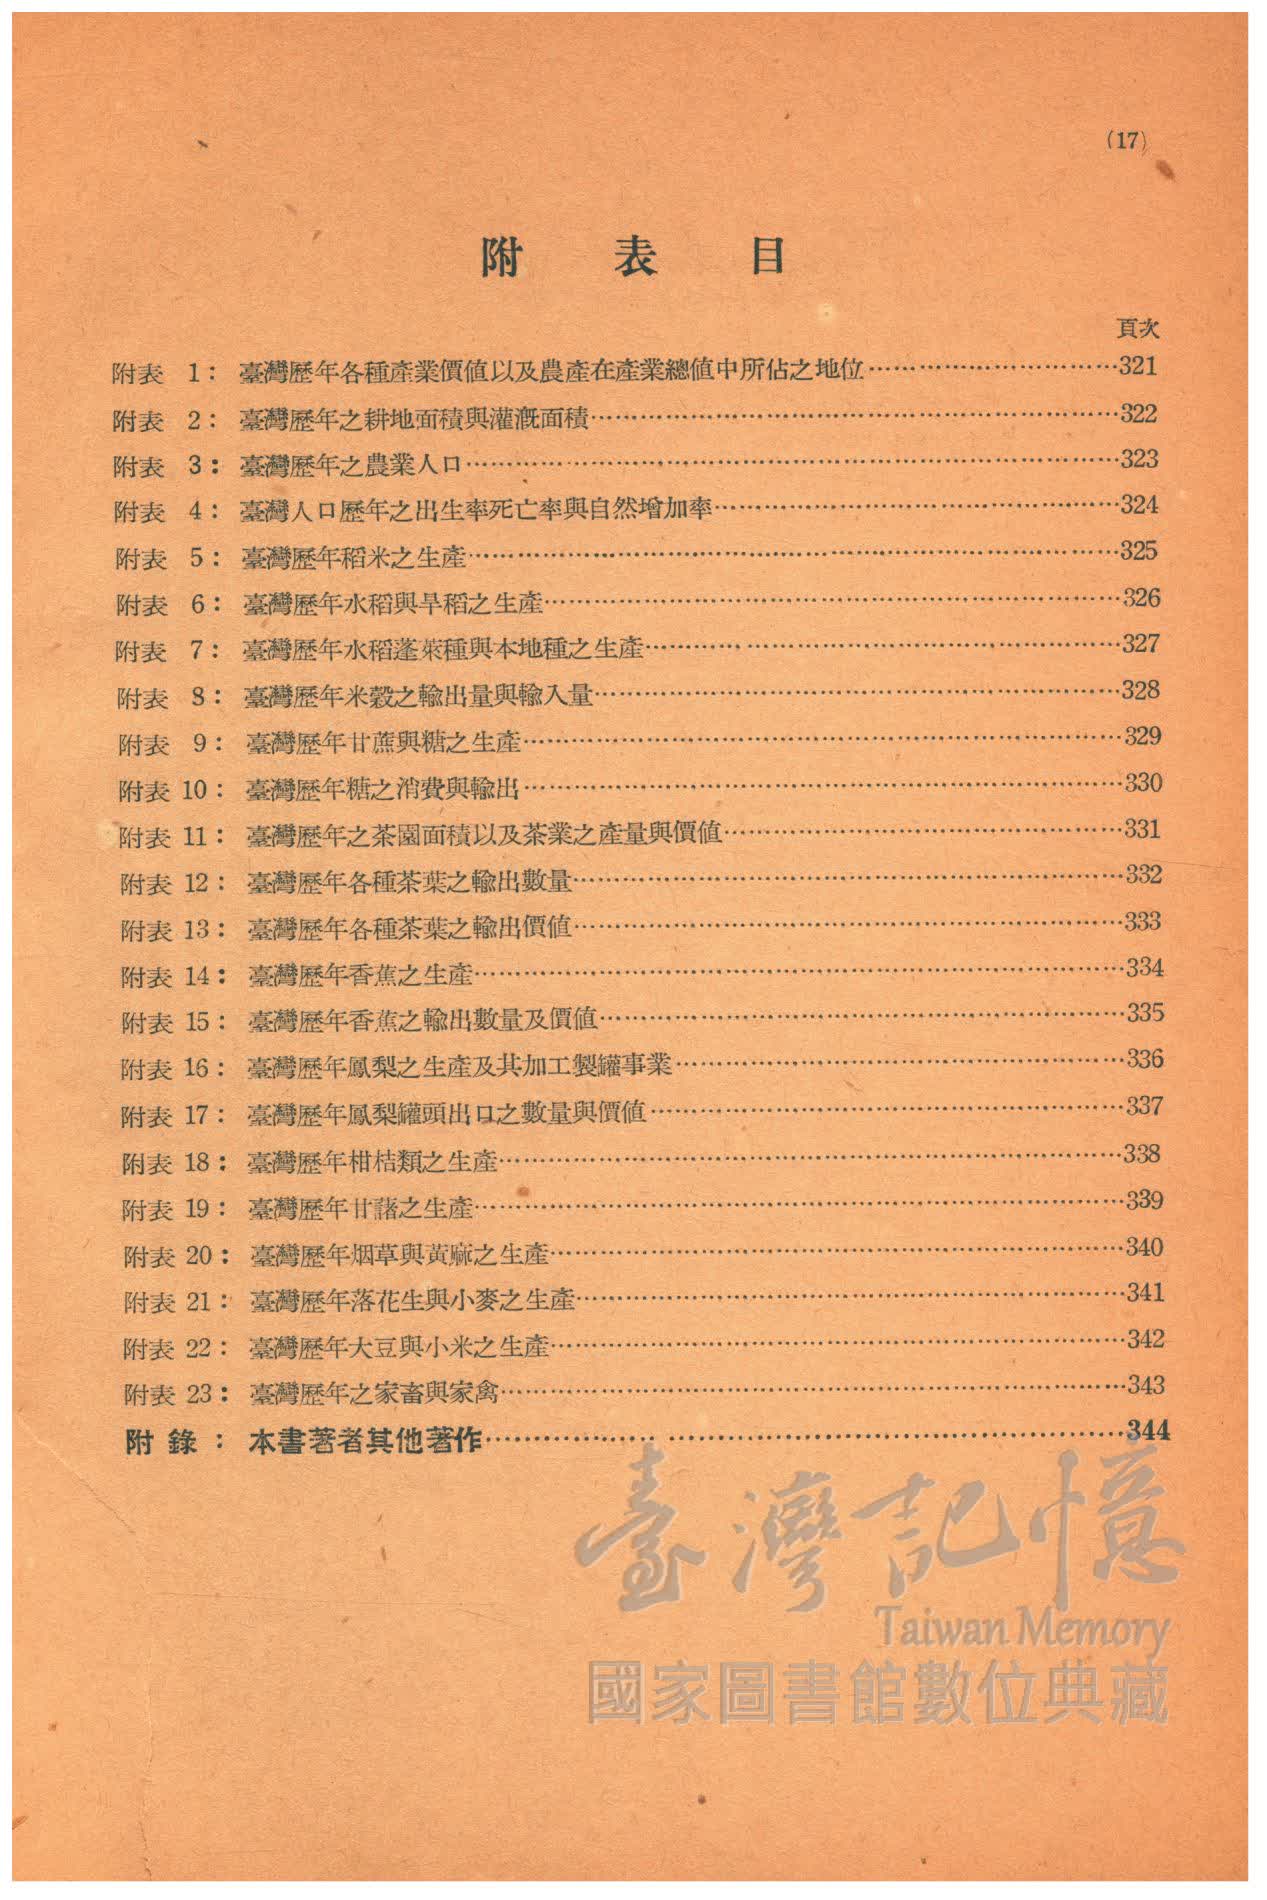 (17)
附表目
頁次
附表 1：臺灣歷年各種產業價值以及農產在產業總值中所佔之地位……………………………321
附表 2：臺灣歷年之耕地面積與灌漑面積……………………………322
附表 3：臺灣歷年之農業人口……………………………323
附表 4：臺灣人口歷年之出生率死亡率與自然增加率……………………………324
附表 5：臺灣歷年稻米之生產……………………………325
附表 6：臺灣歷年水稻與旱稻之生產……………………………326
附表 7：臺灣歷年水稻蓬萊種與本地種之生產……………………………327
附表 8：臺灣歷年米穀之輸出量與輸入量……………………………328
附表 9：臺灣歷年甘蔗與糖之生產……………………………329
附表 10：臺灣歷年糖之消費與輸出……………………………330
附表 11：臺灣歷年之茶園面積以及茶業之產量與價值……………………………331
附表 12：臺灣歷年各種茶葉之輸出數量……………………………332
附表 13：臺灣歷年各種茶葉之輸出價值……………………………333
附表 14：臺灣歷年香蕉之生產……………………………334
附表 15：臺灣歷年香蕉之輸出數量及價值……………………………335
附表 16：臺灣歷年鳳梨之生產及其加工製罐事業……………………………336
附表 17：臺灣歷年鳳梨罐頭出口之數量與價值……………………………337
附表 18：臺灣歷年柑桔類之生產……………………………338
附表 19：臺灣歷年甘藷之生產……………………………339
附表 20：臺灣歷年烟草與黃麻之生產……………………………340
附表 21：臺灣歷年落花生與小麥之生產……………………………341
附表 22：臺灣歷年大豆與小米之生產……………………………342
附表 23：臺灣歷年之家畜與家禽……………………………343
附錄：本書著者其他著作……………………………344
臺灣記憶
Taiwan Memory
國家圖書館數位典藏